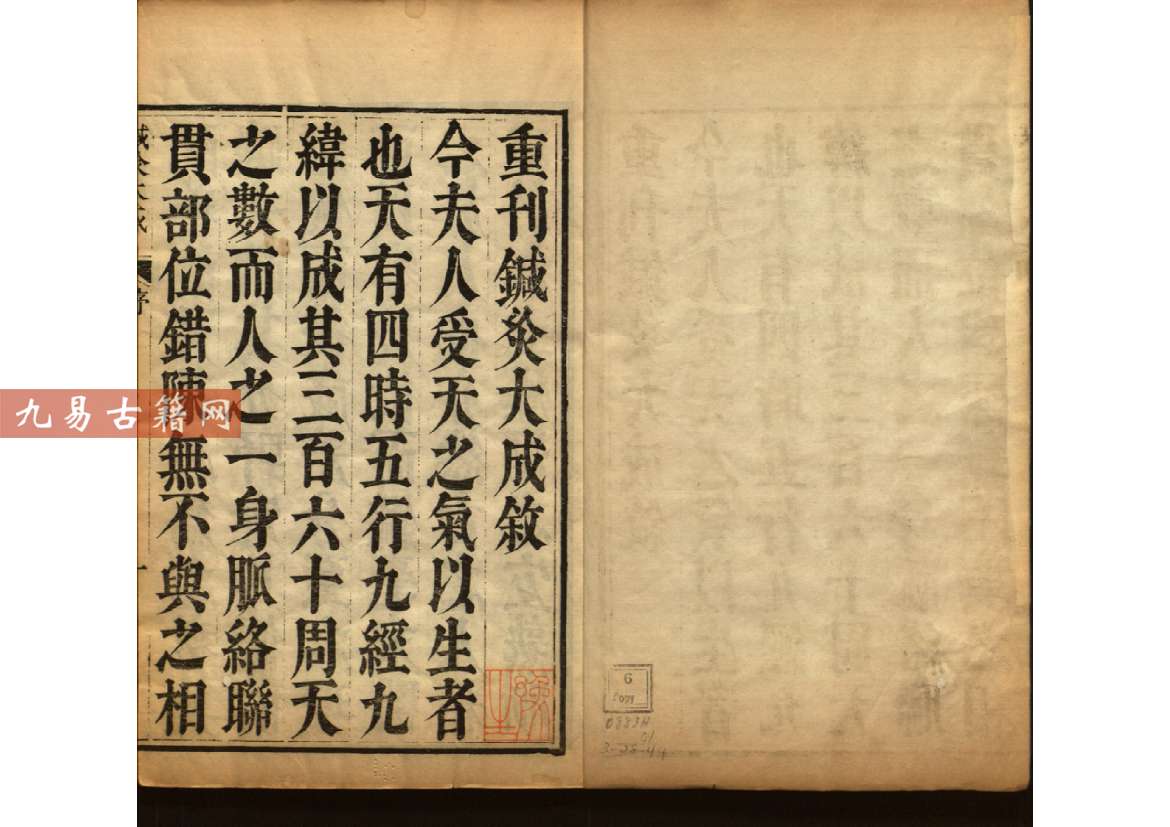 重刊鍼灸大成敘
今夫人受天之氣以生者
也天有四時五行九經九
緯以成其三百六十周天
之數而人之一身脈絡聯
貫部位錯陳無不與之相
序
九易古籍网
6
0883H
01
3-28-44